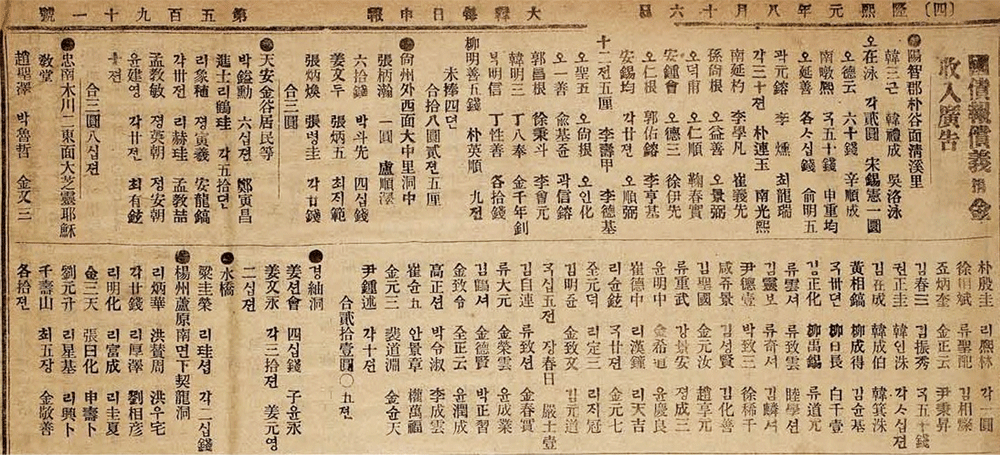 (四) 隆熙元年八月十六日 大韓每日申報 第五百九十一號
國債報償義捐金
收入廣告
陽智郡朴谷面淸溪里
韓三근 韓禮成 吳洛泳
오在泳 각貳圓 宋錫憲一圓
오德云 六十錢 辛順成
南暾熙 국五十錢 申重均
오延善 各사십錢 俞明五
곽元鎔 李燻 최龍瑞
각三十젼 朴連玉 南光熙
南延杓 李學凡 崔義先
孫尙根 오益善 오景弼
오덕甫 오仁順 鞠春實
安鍾會 오德三 徐伊先
오仁根 郭佑鎔 李亨基
安錫均 각廿젼 오順弼
十二젼五厘 李壽甲 李德基
오聖五 오尙根 오인化
오一善 俞基준 곽信鎔
郭昌根 徐秉斗 李會元
韓明三 丁八奉 金千年釗
박명三 丁性善 各拾錢
柳明善五錢 朴英順 九젼
未捧四뎐
合拾八圓貳젼五厘
尙州外西面大中里洞中
張柄瀚 一圓 盧順澤
六拾錢 박斗先 四십錢
姜文두 張炳五 최지範
張炳煥 張령圭 각廿錢
合三圓
天安金谷居民等
박鎰勳 六십젼 鄭寅昌
進士리鶴珪 각五拾뎐
리象稙 졍寅羲 安龍鎬
각卅젼 리赫珪 孟敎喆
孟敎敏 졍英朝 졍安朝
윤建영 각廿젼 최有鉉
合三圓八십젼
忠南木川二東面大芝靈耶穌
敎堂
趙聖澤 박魯哲 金文三
朴殷圭 리熙林 각一圓
류聖配 김相驥
죠炳奎 金正云 尹秉昇
김春三 김振秀 국五十錢
권正圭 韓인洙 각사십젼
김在成 韓成伯 韓箕洙
黃相鎬 柳成得 김윤基
국卅뎐 柳日長 白千壹
김正化 柳禹錫 류道元
류雲셔 류致雲 睦學션
김靈보 류奇셔 김麟셔
尹德壹 박致三 徐稀千
咸致윤 김성賢 김化善
김聖國 金元汝 趙享元
류重武 강景安 졍成三
윤明中 金希道 윤慶良
崔德中 리漢鍾 리天吉
리允鉉 국廿젼 金元七
全元덕 리定三 리지冠
김明윤 金致文 김元道
국십五젼 장春日 嚴士壹
김自連 류致大 金春實
류大元 金榮雲 윤成業
김鶴셔 金德賢 박正習
金致슈 全正云 윤潤成
高正션 박令淑 李成雲
崔윤五 안景章 權萬福
金元三 裴道淵 金슌天
尹鍾述 각十젼
合貳拾壹圓○五젼
경紬洞
姜션會 四십錢 子윤永
姜文永 각三拾젼 姜元영
二십젼
水橋
梁圭榮 리珪셩 각二십錢
楊州蘆原南면下契龍洞
리炳華 洪贊周 洪우宅
각廿젼 리厚榮 劉相彦
리明化 리富成 리圭夏
金三天 張曰化 申壽卜
劉元규 리星基 리興卜
千壽山 최五장 金敬善
各拾젼